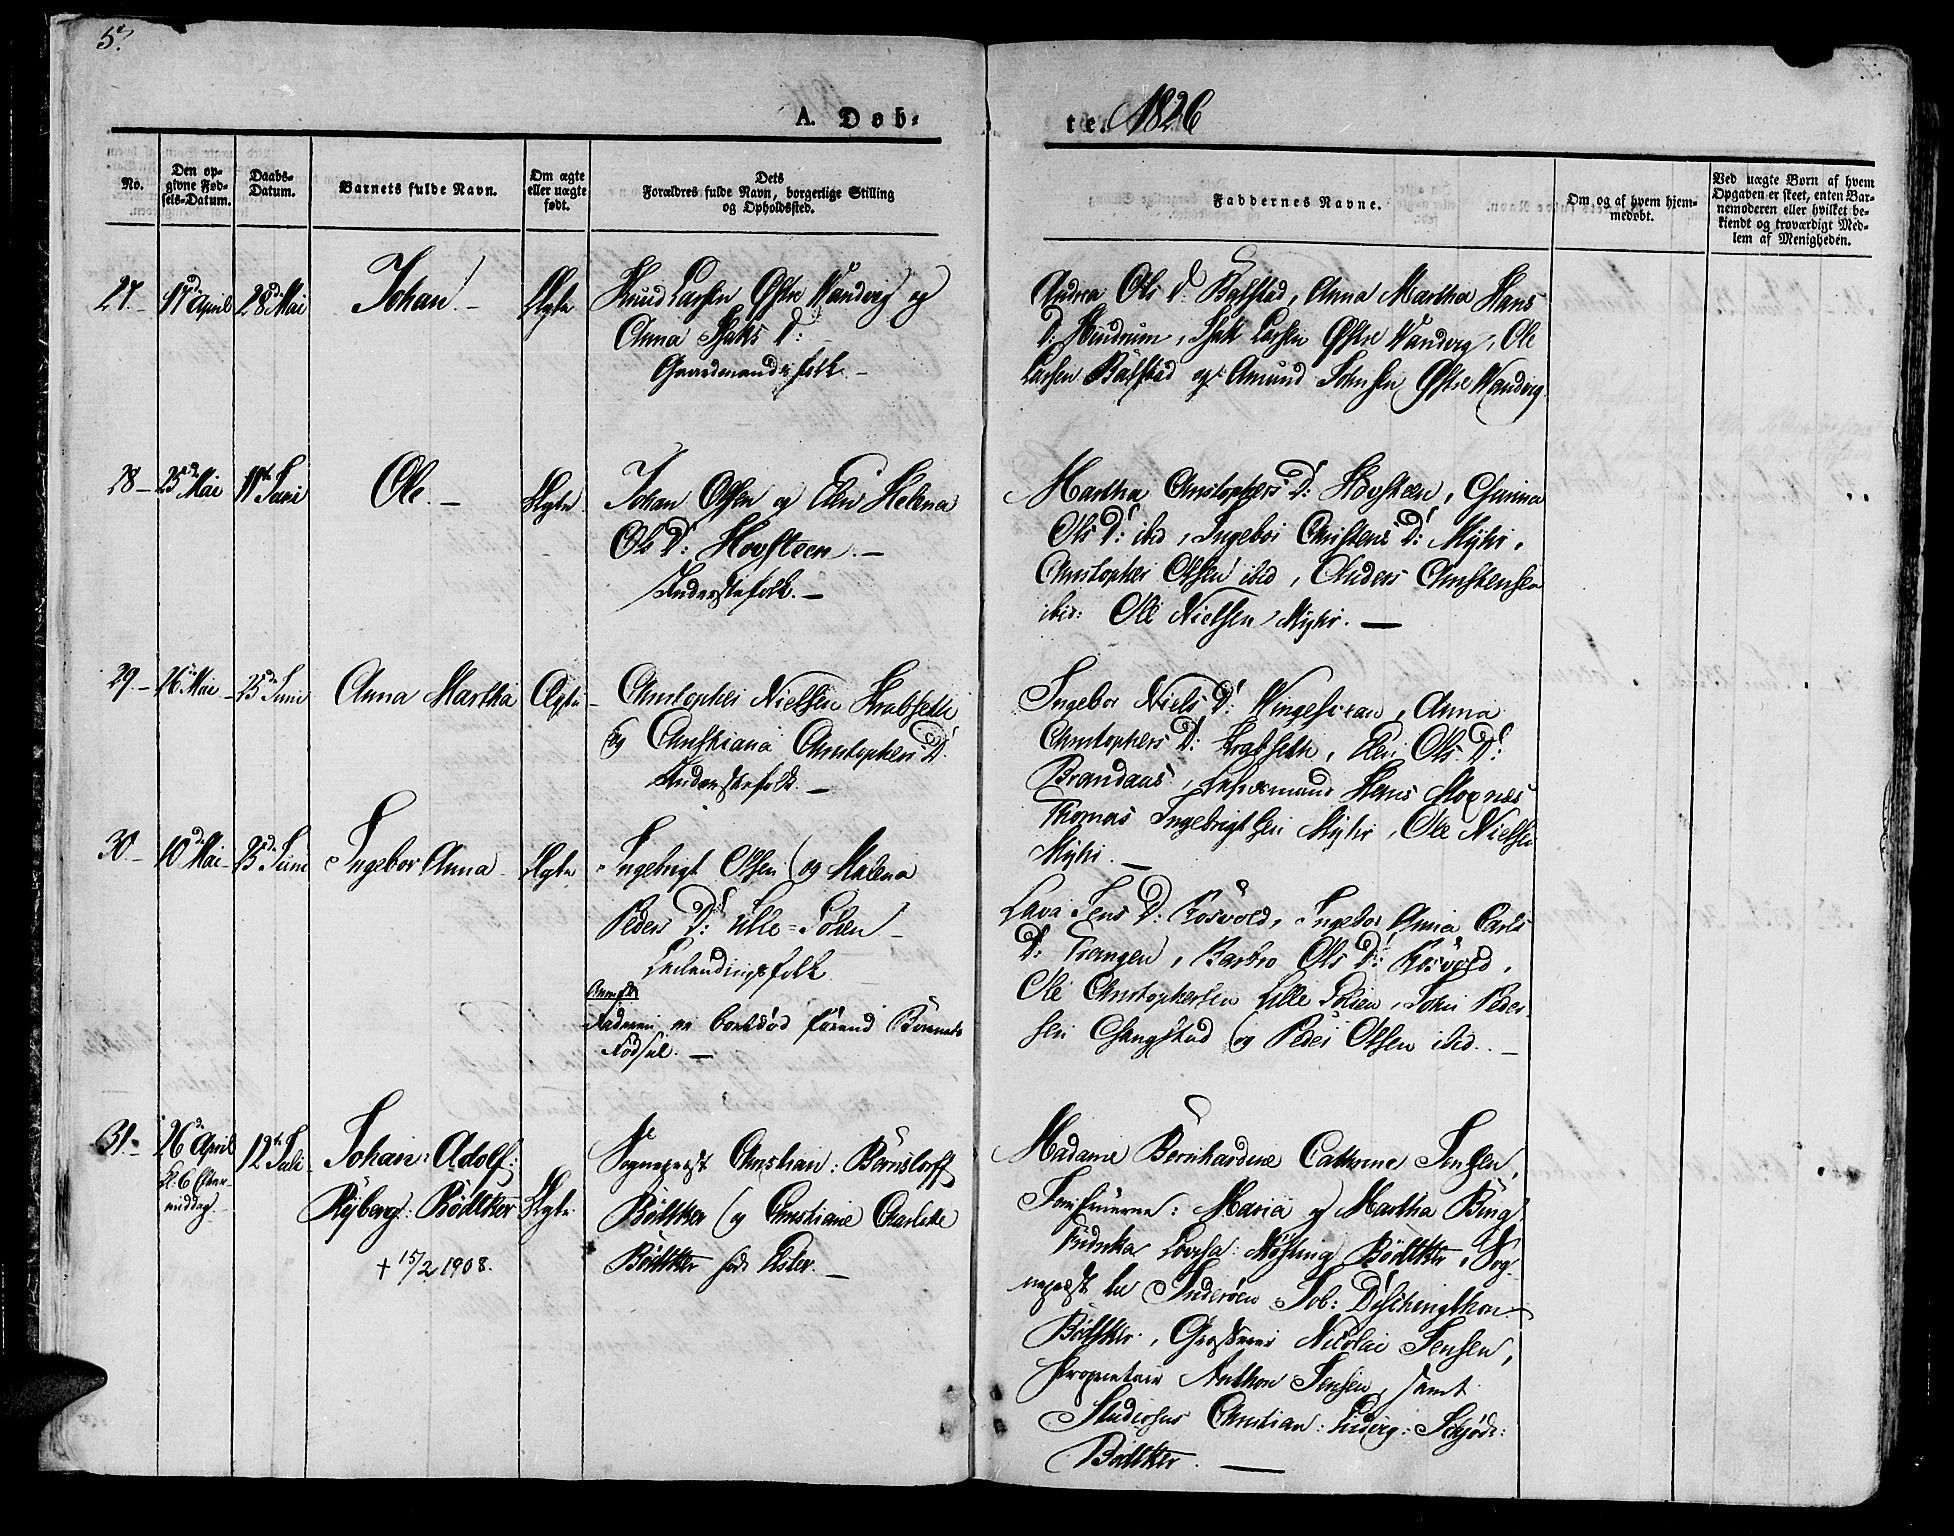 5.
A. Døb-
te. 1826
No.
Den op-
givne Fød-
sels-Datum.
Daabs-
Datum.
Barnets fulde Navn.
Om ægte
eller uægte
født.
Dets
Forældres fulde Navn, borgerlige Stilling
og Opholdssted.
Faddernes Navne.
Om og af hvem hjem-
medøbt.
Ved uægte Børn af hvem
Opgaven er skeet, enten Bar-
nemoderen eller hvilket be-
kiendt og troværdigt Med-
lem af Menigheden.
27.
17de April
28de Mai
Johan. -
Ægte
Knud Larsen Østre Wandvig og
Anna Isaks D:
Gaardmandsfolk. -
Andrea Ols D: Balstad, Anna Martha Hans
D: Hundrum, Isak Larsen Østre Wandvig, Ole
Larsen Balstad og Amund Johnsen Østre Wandvig.
28 -
25de Mai
11te Juni
Ole. -
Ægte
Johan Olsen og Elen Helena
Ols D: Hovsteen. -
Inderstefolk. -
Martha Christophers D: Hovsteen, Gunina
Ols D: ibid, Ingebor Christens D: Myhr,
Christopher Olsen ibid, Anders Christensen
ibid: Ole Nielsen Myhr. -
29. -
26de Mai -
25de Juni
Anna Martha
Ægte -
Christopher Nielsen Krabseth
og Christiana Christophers D:
Inderstefolk. -
Ingebor Niels D: Wingesvean, Anna
Christophers D: Krabseth, Elen Ols D:
Brandaas, Lehnsmand Hans Moxnes
Thomas Ingebrigtsen Myhr, Ole Nielsen
Myhr. -
30. -
10de Mai -
25de Juni
Ingebor Anna
Ægte
Ingebrigt Olsen og Malena
Peders D: Lille-Solen -
Leilendingsfolk
Anmk
Faderen er bortdød førend Barnets
Fødsel. -
Lava Jens D: Rosvold, Ingebor Anna Carls
D: Trangen, Barbro Ols D: Rosvold,
Ole Christophersen Lille Solen, John Peder-
sen Gangstad og Peder Olsen ibid. -
31. -
26de April
Kl. 6 Efter-
middag
12te Juli
Johan: Adolf:
Ryberg: Bödtker
+ 15/2 1908.
Ægte
Sognepræst Christian: Bernstorff
Bödtker og Christiane Charlotte
Bödtker født Elster. -
Madame Bernhardine Cathrine Jensen,
Jomfruerne: Maria og Martha Bing
Fridrika Lovisa: Mösting Bödtker, Sog-
nepræst til Inderöen Job: Dischingthon
Bödtker, Grosserer Nicolai Jensen,
Proprietair Anthon Jensen, samt
Studiosus Christian: Ludvig: Schjöde:
Bödtker. -